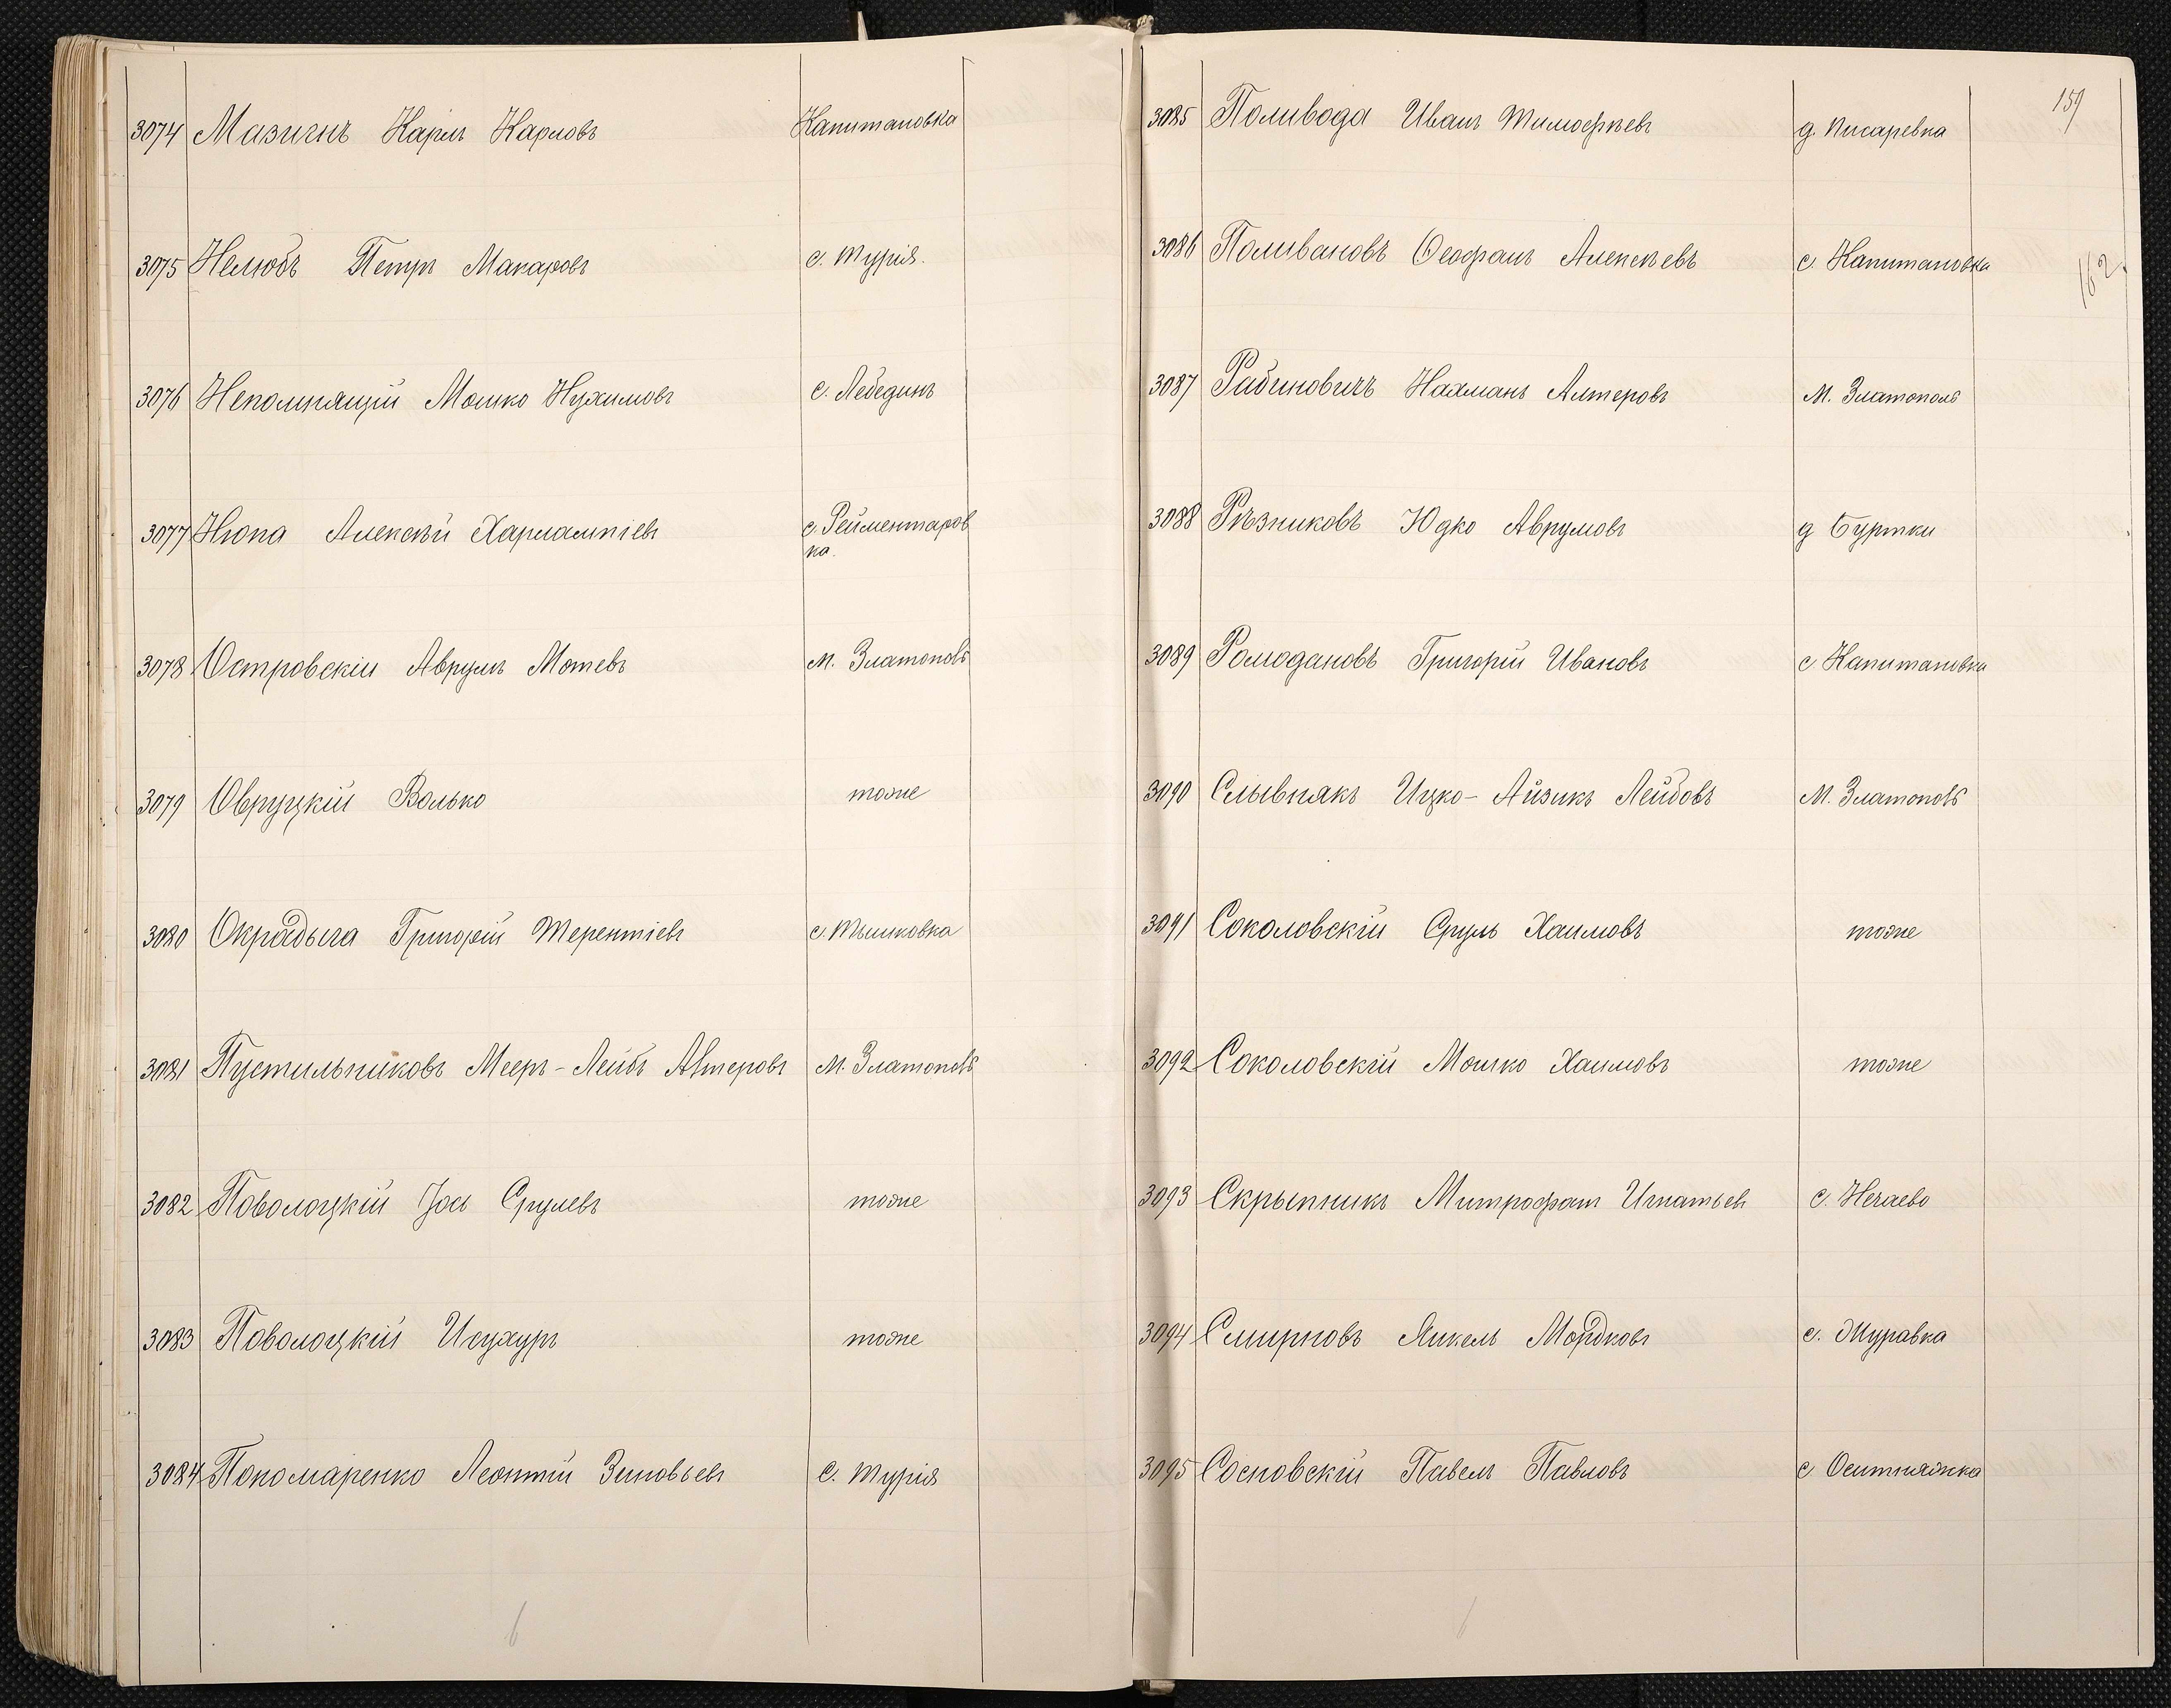 3074 Мазингъ Карлъ Карловъ Капитановка
3075 Нелюбъ Петръ Макаровъ с. Турія.
3076 Непомнящій Мошко Нухимовъ с. Лебединъ
3077 Нюпа Алексѣй Харлампіевъ с. Рейментаров
ка.
3078 Островскій Аврумъ Мотевъ м. Златополь
3079 Овруцкій Волько тоже
3080 Окрадыга Григорій Терентіевъ с. Тышковка
3081 Пустильниковъ Мееръ-Лейбъ Алтеровъ м. Златополь
3082 Поволоцкій Іось Срулевъ тоже
3083 Поволоцкій Исухуръ тоже
3084 Пономаренко Леонтій Зиновьевъ с. Турія
6
159
3085 Поливода Иванъ Тимофѣевъ д. Писаревка
3086 Поливановъ Ѳеофанъ Алексѣевъ с. Капитановка
162
3087 Рабиновичъ Нахманъ Алтеровъ м. Златополь
3088 Рѣзниковъ Юдко Аврумовъ д Буртки
3089 Ромодановъ Григорій Ивановъ с. Капитановка
3090 Слывнякъ Ицко-Айзикъ Лейбовъ м. Златополь
3091 Соколовскій Сруль Хаимовъ тоже
3092 Соколовскій Мошко Хаимовъ тоже
3093 Скрыпникъ Митрофанъ Игнатьевъ с. Нечаево
3094 Смирновъ Янкель Мордковъ с. Журавка
3095 Сосновскій Павелъ Павловъ с Оситняжка
6